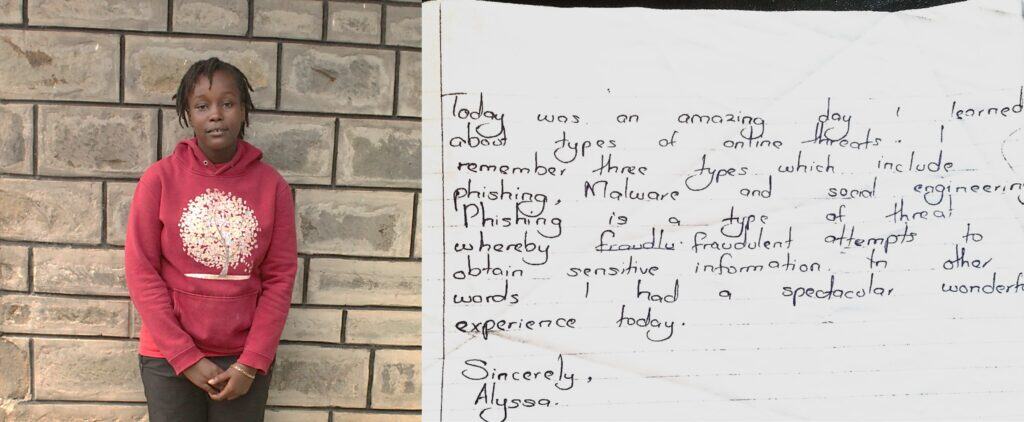 Today was an amazing day I learned
about types of online threats. I
remember three types which include
phishing, Malware and social engineering
Phishing is a type of threat
whereby fraudlu fraudulent attempts to
obtain sensitive information. In other
words I had a spectacular wonderful
experience today.
Sincerely,
Alyssa.